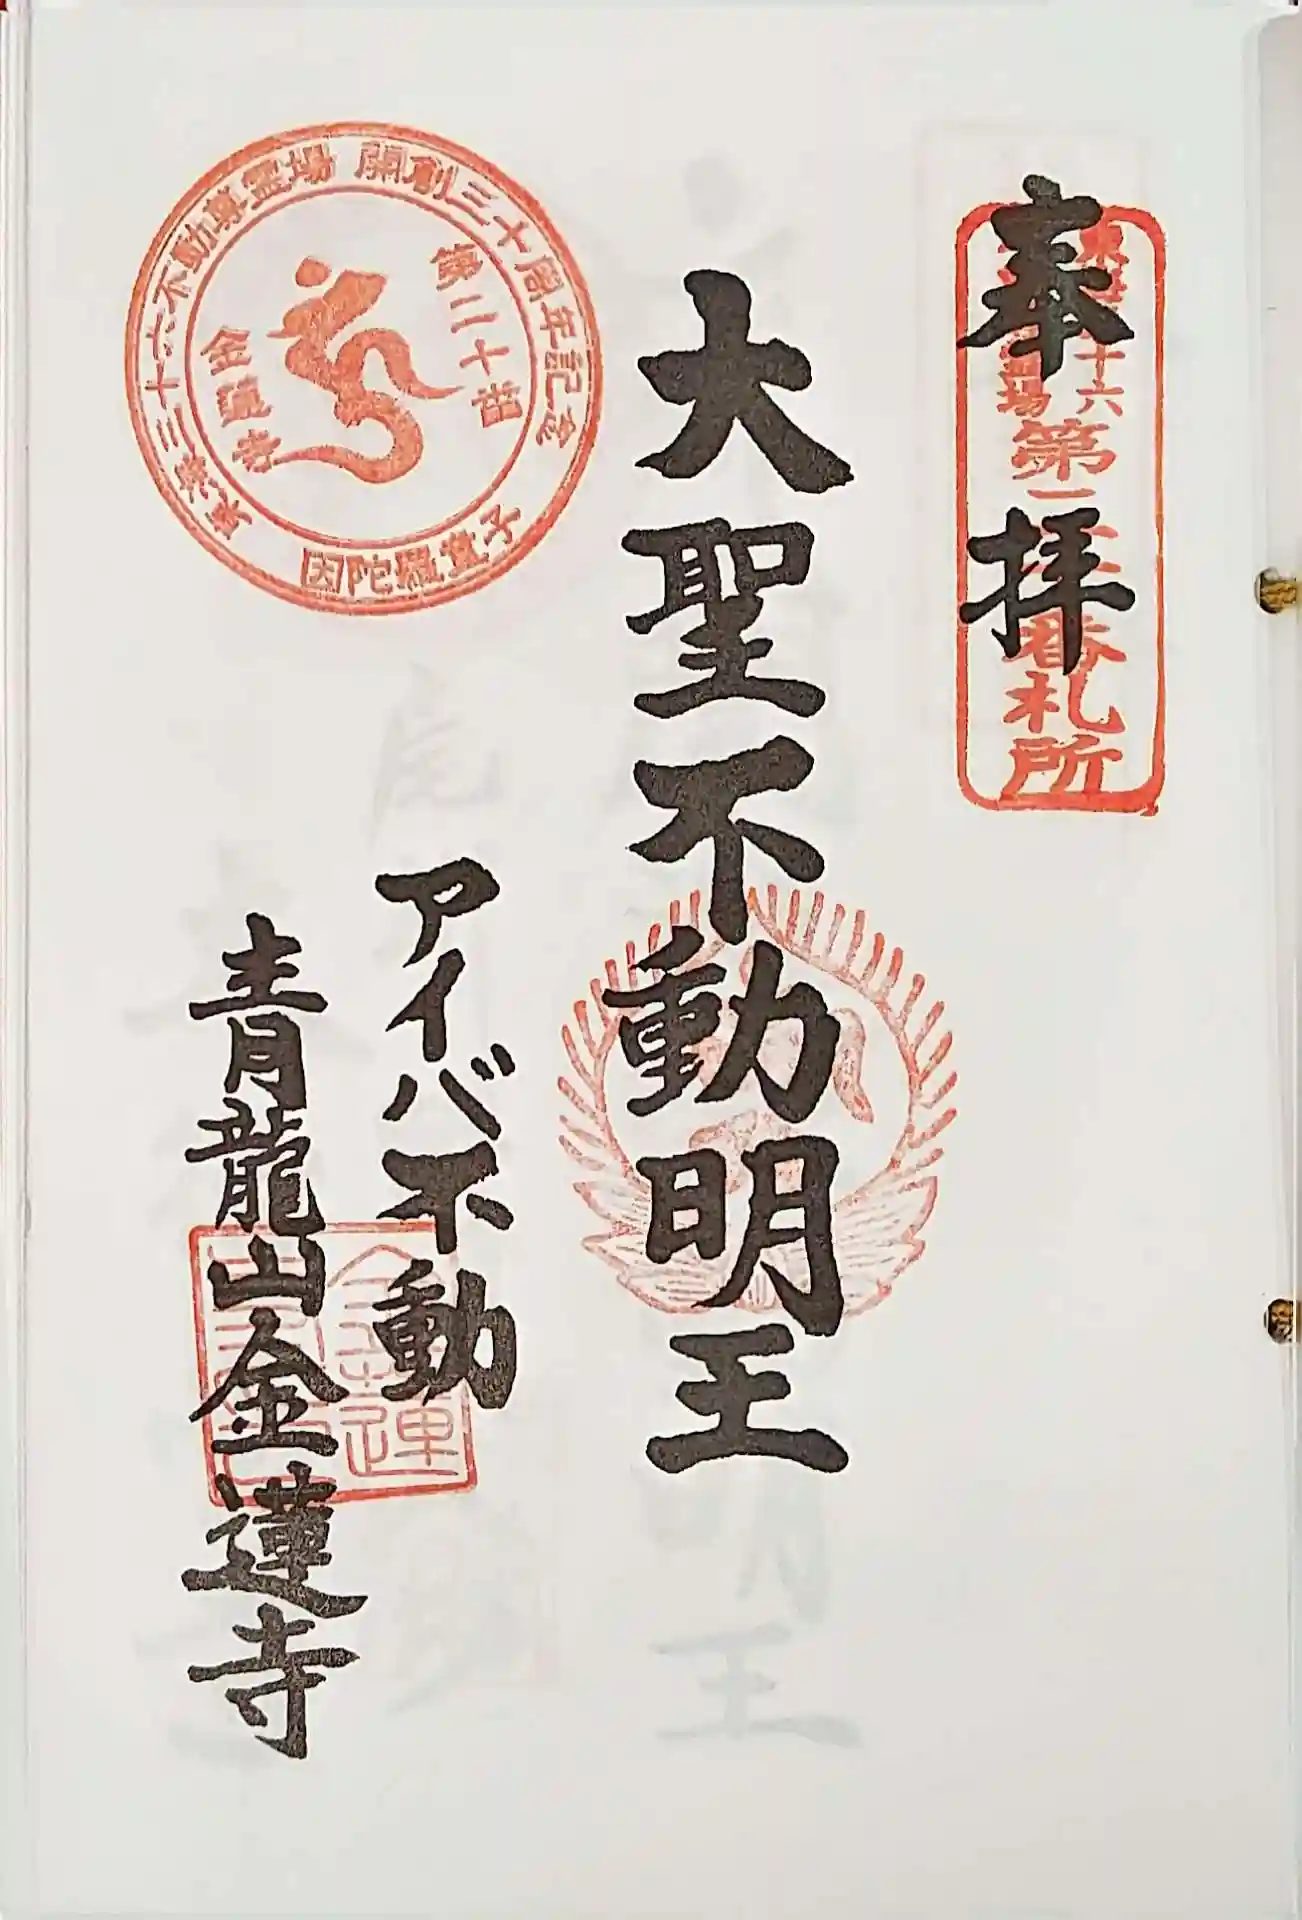 奉拝
東海三十六
霊場
第一
番札所
大聖不動明王
アイバ不動
青龍山金蓮寺
東海三十六不動尊霊場 開創三十周年記念
佛二十相
金蓮寺
因陀羅童子
金蓮